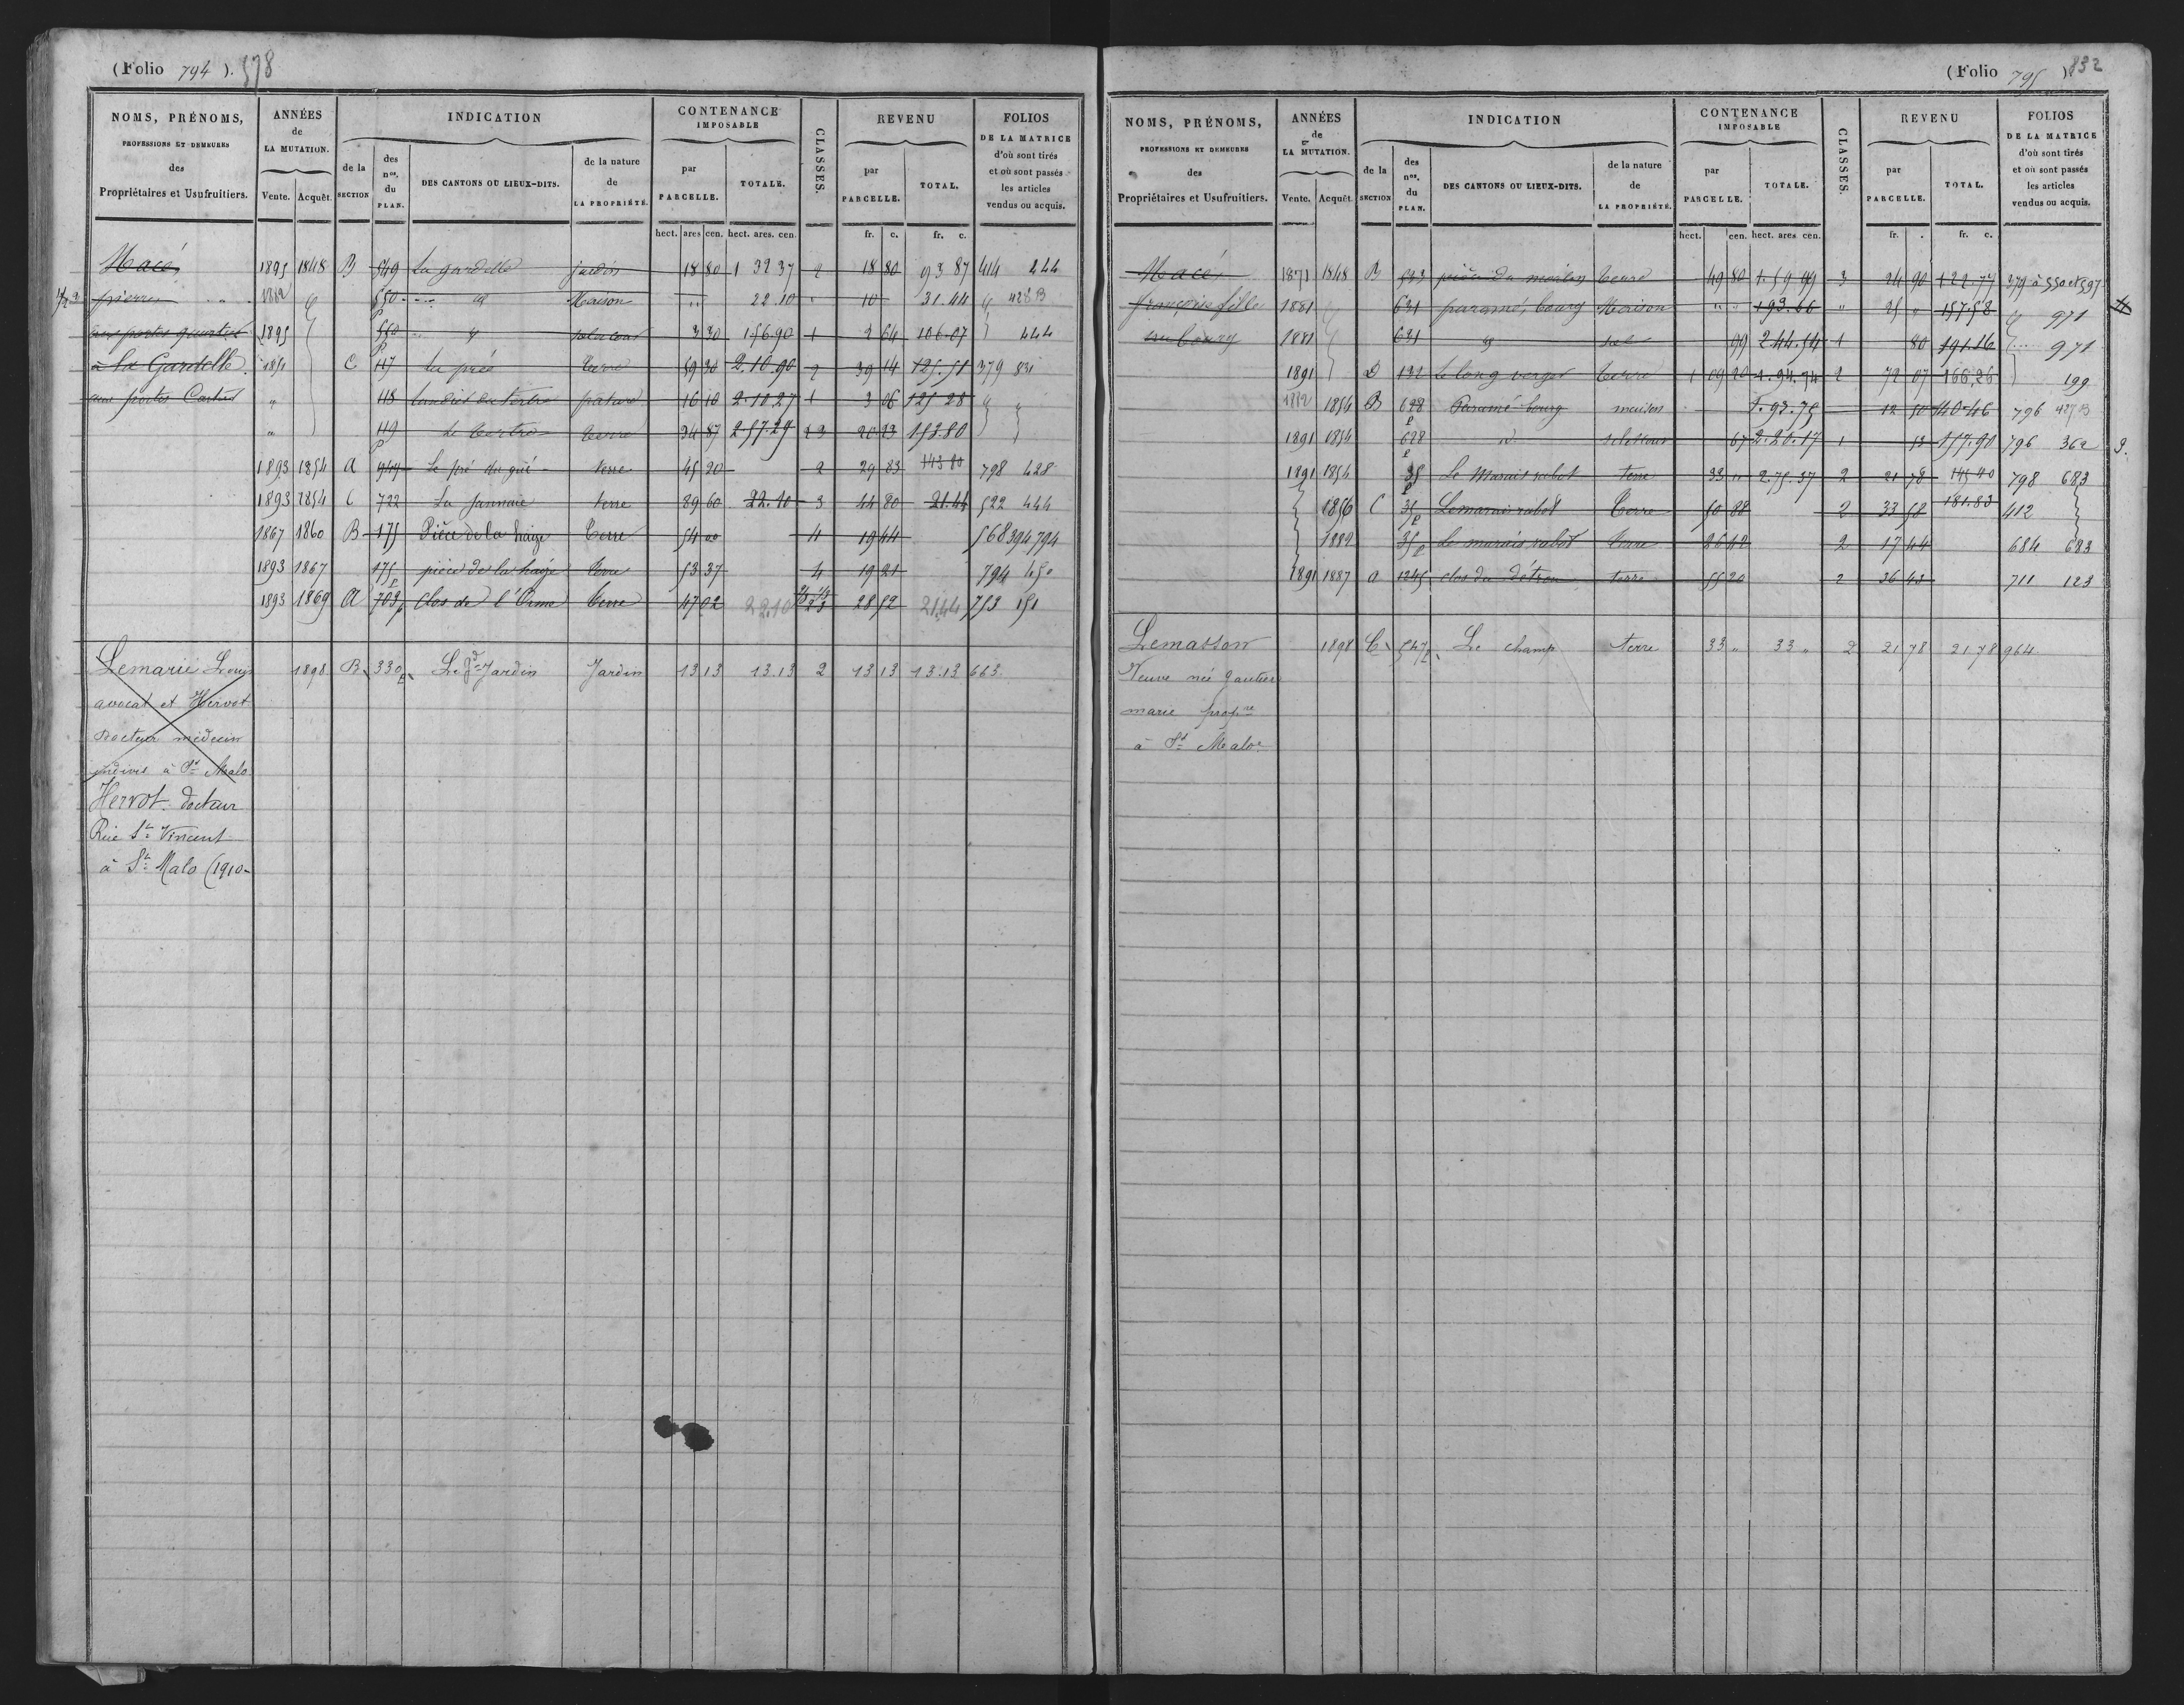 (Folio 794). 578
NOMS, PRÉNOMS, PROFESSIONS ET DEMEURES des Propriétaires et Usufruitiers.
ANNÉES de LA MUTATION. Vente. Acquêt.
INDICATION de la SECTION des nos. du PLAN. DES CANTONS OU LIEUX-DITS. de la nature de LA PROPRIÉTÉ.
CONTENANCE IMPOSABLE par PARCELLE. TOTALE.
CLASSES.
REVENU par PARCELLE. TOTAL.
FOLIOS DE LA MATRICE d'où sont tirés et où sont passés les articles vendus ou acquis.
hect. ares cen. hect. ares. cen. fr. c. fr. c.
Macé, 1895 1848 B 549 La gardelle jardin 18 80 1 32 37 2 18 80 93 87 414 444
pierre 1882 550 Maison 22.10 10 31.44 428 B
aux portes quartes 1895 550 P 3 30 1.56.90 1 2 64 106.07 444
à la Gardelle. 1891 C 117 Le préé terre 59 30 2.10.90 2 39 14 125.51 379 831
aux portes Cartes 118 pature 16 10 2.10 27 1 3 06 125 28
119 P Le tertre terre 34 87 2.57.29 23 20 23 153.80
1893 1854 A 944 Le pré du gué terre 45 20 2 29 83 143 80 798 428
1893 1854 C 722 La Jannaie terre 89 60 22.10 3 44 80 21.44 522 444
1867 1860 B 175 Pièce de la haize Terre 54 00 4 19 44 568 394 794
1893 1867 175 P pièce de la haize Terre 53 37 4 19 21 794 450
1893 1869 A 703 P Clos de l'Orme terre 47 02 22.10 23 28 52 21.44 753 151
Lemarié Louis 1898 B 330 P Le Gd Jardin Jardin 13 13 13.13 2 13 13 13.13 663
avocat et Hervot
Docteur médecin
indivis à St Malo
Hervot docteur
Rue St Vincent
à St Malo (1910-
(Folio 795) 832
NOMS, PRÉNOMS, PROFESSIONS ET DEMEURES des Propriétaires et Usufruitiers.
ANNÉES de LA MUTATION. Vente. Acquêt.
INDICATION de la SECTION des nos. du PLAN. DES CANTONS OU LIEUX-DITS. de la nature de LA PROPRIÉTÉ.
CONTENANCE IMPOSABLE par PARCELLE. TOTALE.
CLASSES.
REVENU par PARCELLE. TOTAL.
FOLIOS DE LA MATRICE d'où sont tirés et où sont passés les articles vendus ou acquis.
hect. cen. hect. ares cen. fr. . fr. c.
Macé, 1871 1848 B 533 pièce du moulin terre 49 80 1.59.49 3 24 90 122.77 379 à 550 et 597
françoise fille 1881 631 paramé, bourg Maison " " 193.66 " 25 " 157.58 971
au bourg 1881 631 sol 99 2.44.54 1 80 191.16 971
1891 D 132 Le long verger terre 1 09 20 1.94.74 2 72 07 166.26 199
1882 1854 B 628 P Paramé bourg maison 1.93.75 12 50 140.46 796 427 B
1891 1854 628 P id. sol et cour 67 2.26.17 1 13 157.90 796 362
1891 1854 35 P Le Marais rabot terre 33 " 2.75.37 2 21 78 145 40 798 683
1856 C 35 P Le marais rabot Terre 50 88 2 33 58 181.83 412
1882 35 P Le marais rabot terre 26 42 2 17 44 684 683
1891 1887 a 1245 clos du détrou terre 55 20 2 36 43 711 123
Lemasson 1898 C 547 P Le champ terre 33 " 33 " 2 21 78 21 78 964
Veuve née Gautier
marie propre
à St Malo